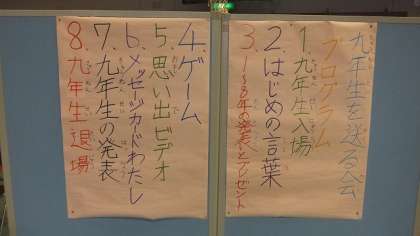 九年生を送る会
プログラム
1.九年生入場
2.はじめの言葉
3.1〜8年の発表とプレゼント
4.ゲーム
5.思い出ビデオ
6.メッセージカードわたし
7.九年生の発表
8.九年生退場